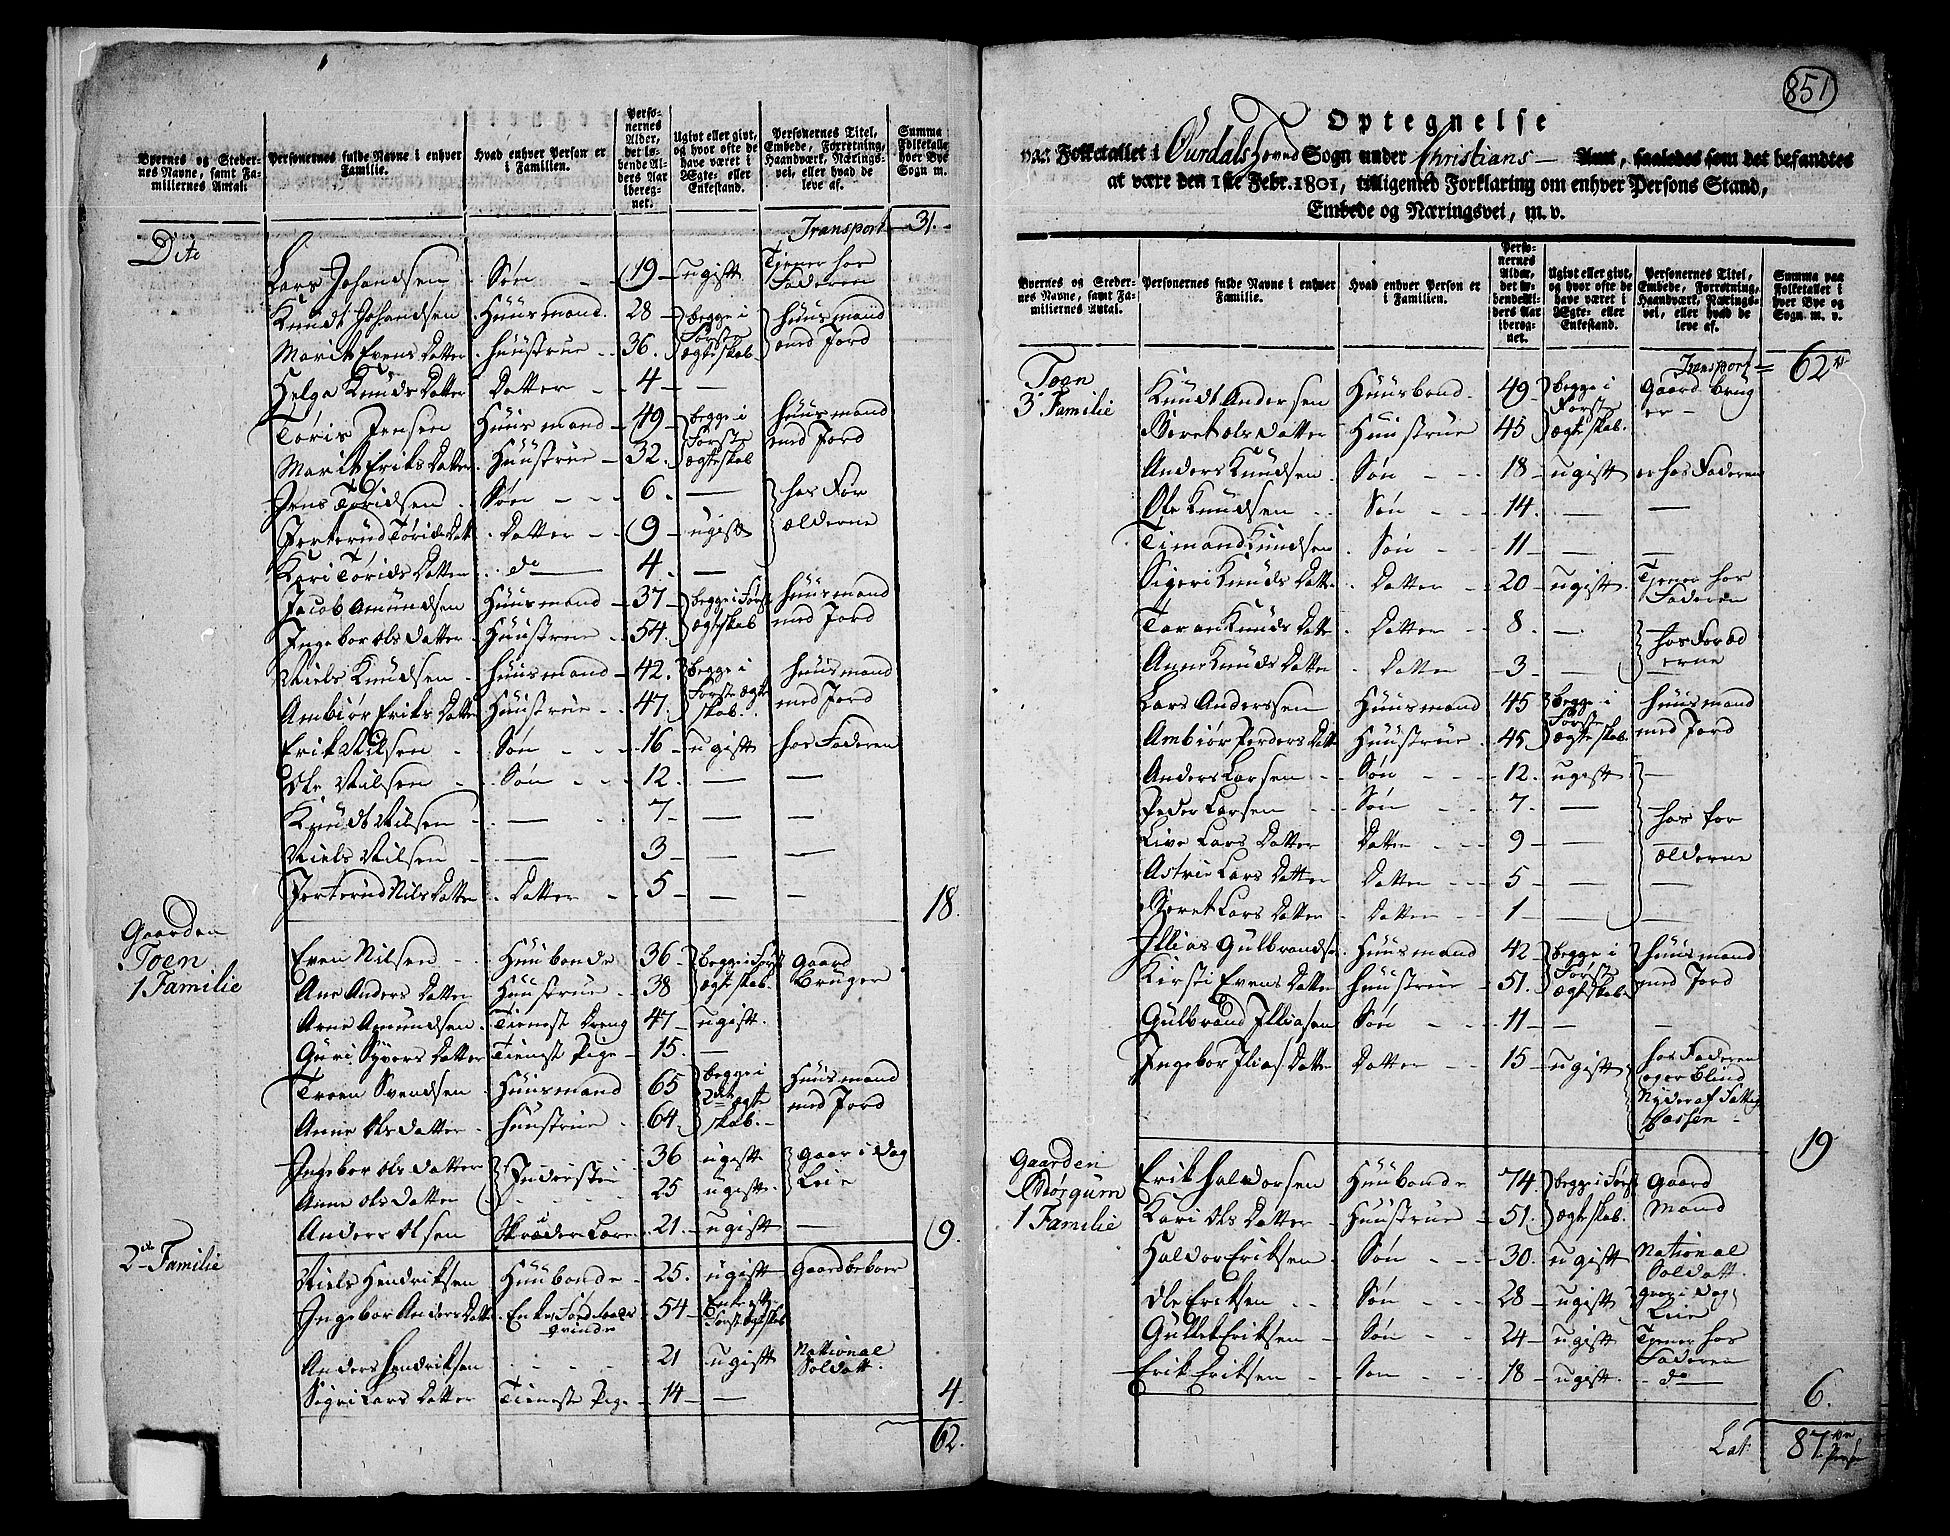 Byernes og Steder-
nes Navne, samt Fa-
miliernes Antal.
Personernes fulde Navne i enhver
Familie.
Hvad enhver Person er
i Familien.
Perso-
nernes
Alder,
det lø-
bende Al-
ders Aar
iberæg-
net.
Ugivt eller givt,
og hvor ofte de
have været i
Ægte- eller
Enkestand.
Personernes Titel,
Embede, Forretning,
Haandværk, Nærings-
vei, eller hvad de
leve af.
Summa
Folketallet
hver Bye
Sogn m.
Transport 31.
Dito
Lars Johandsen Søn 19 ugift Tjener hos Faderen
Knudt Johandsen Huusmand 28 begge i Første ægteskab huusmand med Jord
Marit Evens Datter huustrue 36.
Helga Knuds Datter Datter 4 —
Tøris Jensen Huusmand 49 begge i Første ægteskab huusmand med Jord
Marit Eriks Datter Huustrue 32.
Jens Tøridsen Søn 6 — hos For ælderne
Jorterud Tørids Datt Datter 9 ugift
Kari Tørids Datter do 4. —
Jacob Amundsen Huusmand 37 begge i Først ægteskab huusmand med Jord
Ingebor Ols Datter Huustrue 54.
Niels Knudsen huusmand 42. begge i Første ægte skab. huusmand med Jord
Ambiør Eriks Datter Huustrue 47.
Erik Nilsen Søn 16 ugift hos Faderen
Ole Nilsen Søn 12 — —
Knudt Nilsen — 7 — —
Niels Nilsen — 3 — —
Jorterud Nils Datter Datter 5 — —
18.
Gaarden
Toen
1 Familie
Even Nilsen Huubonde 36 begge i Først ægteskab. Gaard Bruger
Ane Anders Datter Huustrue 38
Arne Amundsen Tienest Dreng 47 ugift.
Guri Syvers Datter Tienest Pige 15. —
Troen Svendsen Huusmand 65 begge i 2det ægte skab. Huusmand med Jord
Anne Ols Datter huustrue 64.
Ingebor Ols Datter Inderster 36 ugift Gaar i Dag Leie
Anne Ols Datter 25 ugift
Anders Olsen 21 ugift —
9.
2de Familie
Niels Hendriksen Huubonde 25. ugift Gaardbeboer
Ingebor Anders Datt Enke 54
Anders Hendriksen 21 ugift National Soldatt.
Sigri Lars Datter Tieneste Pige 14 —
4.
62.
851
Optegnelse
paa Folketallet i Ourdals Hoved Sogn under Christians Amt, saaledes som det befandtes
at være den 1ste Febr. 1801, tilligemed Forklaring om enhver Persons Stand,
Embede og Næringsvei, m. v.
Byernes og Steder-
nes Navne, samt Fa-
miliernes Antal.
Personernes fulde Navne i enhver
Familie.
Hvad enhver Person er
i Familien.
Perso-
nernes
Alder,
det lø-
bende Al-
ders Aar
iberæg-
net.
Ugivt eller givt,
og hvor ofte de
have været i
Ægte- eller
Enkestand.
Personernes Titel,
Embede, Forretning,
Haandværk, Nærings-
vei, eller hvad de
leve af.
Summa paa
Folketallet i
hver Bye og
Sogn. m. v.
Transport 62
Toen
3 Familie
Knudt Andersen Huusbond. 49 begge i Første ægteskab. Gaard brug er
Beret Ols Datter Huustrue 45
Anders Knudsen Søn 18 ugift er hos Faderen
Ole Knudsen Søn 14. — —
Timand Knudsen Søn 11 — —
Sigeri Knuds Datter Datter 20 ugift Tjener hos Faderen
Toran Knuds Datte Datter 8. — hos Foræld erne
Anne Knuds Datter Datter 3 —
Lars Anderssen Huusmand 45 begge i Første ægteskab. huusmand med Jord
Ambiør Peders Datt Huustrue 45
Anders Larsen Søn 12. ugift —
Peder Larsen Søn 7 — hos for ælderne
Live Lars Datter Datter 9 —
Astrie Lars Datter Datter 5 — —
Beret Lars Datter Datter 1 — —
Illias Gulbrandse Huusmand 42 begge i Første ægteskab huusmand med Jord
Kirsti Evens Datter huustrue 51.
Gulbrand Illiasen Søn 11 — —
Ingebor Ilias Datter Datter 15 ugift hos Faderen og er Blind Nyder af Fattig Cassen
19
Gaarden
Børgum
1 Familie
Erik Haldorsen Huubonde 74. begge i Først ægteskab. Gaard Mand
Kari Ols Datter Huustrue 51.
Haldor Eriksen Søn 30. ugift National Soldatt.
Ole Eriksen Søn 28 ugift gaar i Dag Leie
Gullek Eriksen Søn 24 ugift Tjener hos Faderen
Erik Eriksen Søn 18 ugift do
6.
Lat. 87